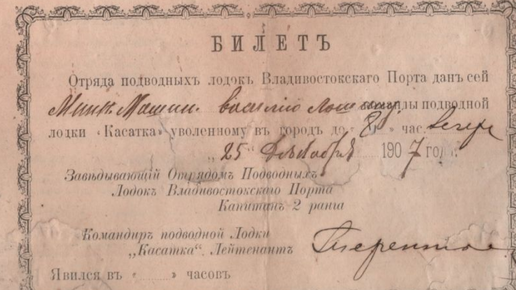 БИЛЕТЪ
Отряда подводныхъ лодокъ Владивостокскаго Порта данъ сей
Василію команды подводной
лодки «Касатка» уволенному въ городъ до 8 час. вечера
„25" Декабря 1907 года.
Завѣдывающій Отрядомъ Подводныхъ
Лодокъ Владивостокскаго Порта
Капитанъ 2 ранга
Командиръ подводной Лодки
"Касатка" Лейтенантъ
Явился въ „ " часовъ